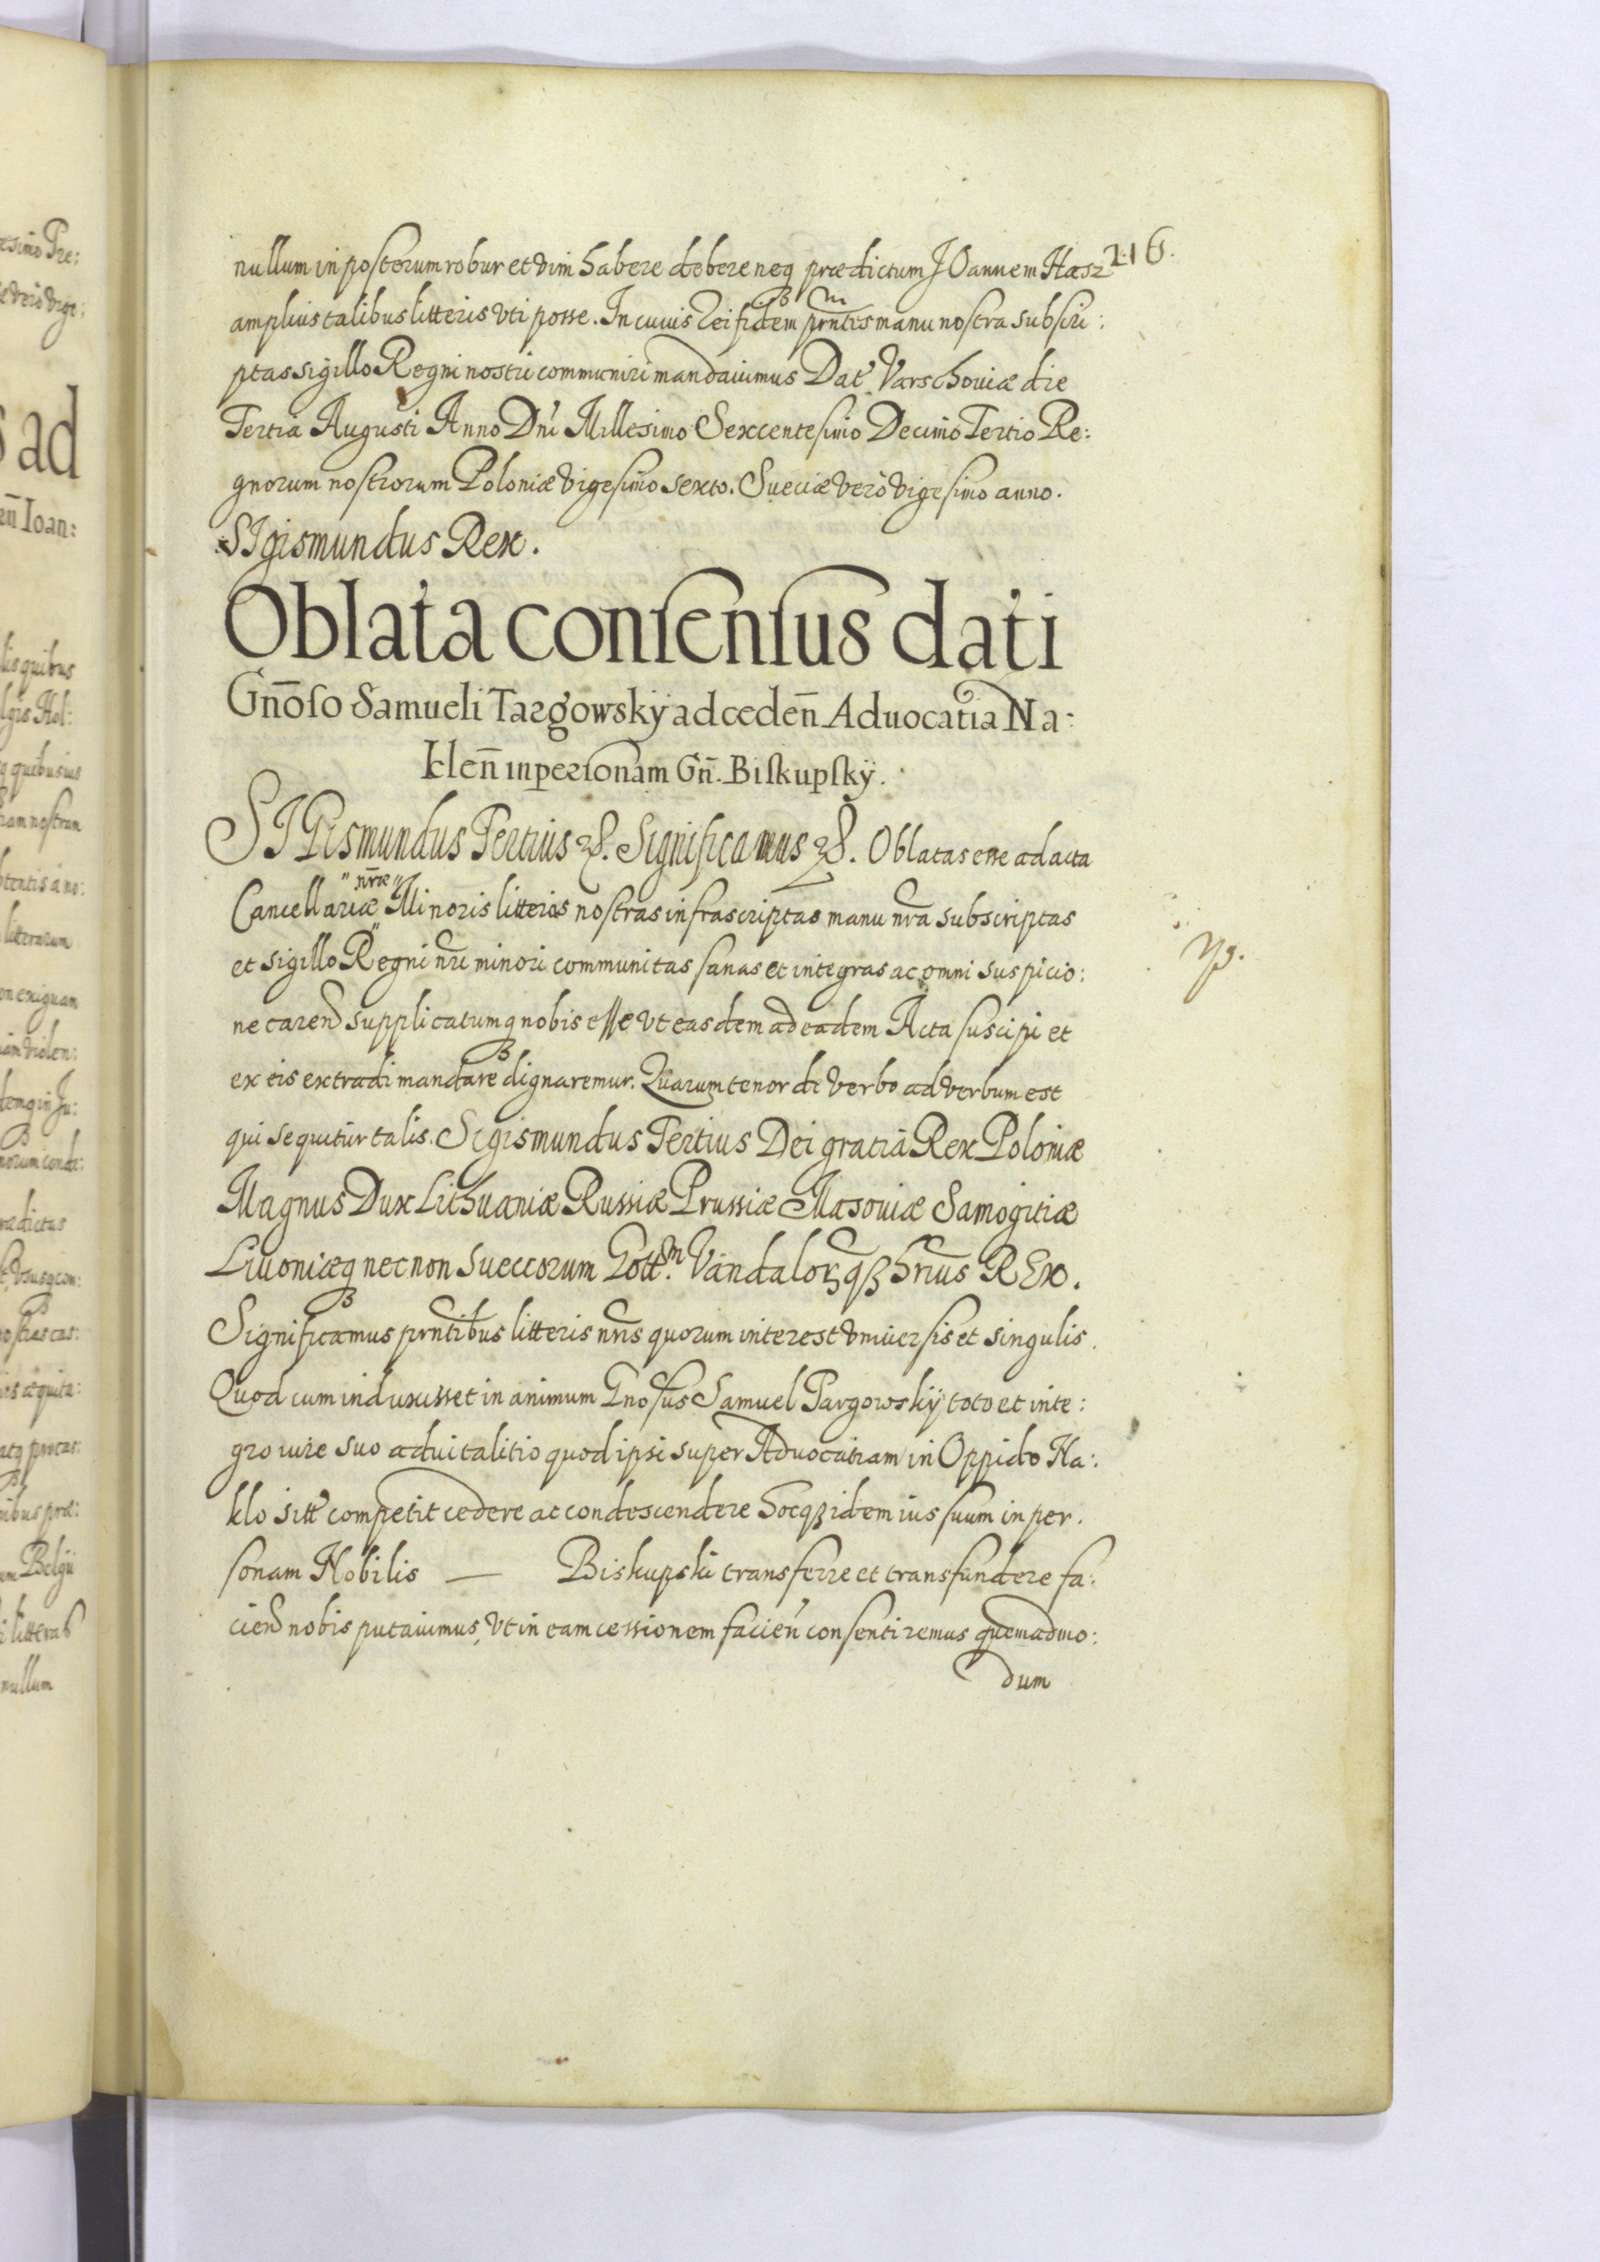 216.
nullum in posterum robur et vim habere debere neq prædictum JOannem Hæsz
amplius talibus litteris vti posse. In cuius rei fidem prntes manu nostra subscri:
ptas sigillo Regni nostri communiri mandauimus Dat Varschouiæ die
Tertia Augusti Anno Dni Millesimo Sexcentesimo Decimo Tertio Re:
gnorum nostrorum Poloniæ vigesimo sexto. Sueciæ vero vigesimo anno.
SIgismundus Rex.
Oblata consensus dati
Gnoso Samueli Targowskÿ ad ceden Aduocatia Na:
klen in personam Gn. Biskupskÿ.
SIGismundus Tertius &. Significamus &. Oblatas esse ad acta
Cancellariæ "nræ" Minoris litteras nostras infrascriptas manu nra subscriptas
et sigillo Regni nri minori communitas sanas et integras ac omni suspicio:
ne caren supplicatumq nobis esse vt easdem ad eadem Acta suscipi et
ex eis extradi mandare dignaremur. Quarum tenor de verbo ad verbum est
qui sequitur talis. Sigismundus Tertius Dei gratiâ Rex Poloniæ
Magnus Dux Lithuaniæ Russiæ Prussiæ Masouiæ Samogitiæ
Liuoniæq necnon Sueccorum Gott.m Vandalorq hrius REx.
Significamus prntibus litteris nris quorum interest vniuersis et singulis.
Quod cum induxisset in animum Gnosus Samuel Targowskÿ toto et inte:
gro iure suo aduitalitio quod ipsi super Aduocatiam in Oppido Na:
klo sitt competit cedere ac condescendere hocq idem ius suum in per.
sonam Nobilis — Biskupski transferre et transfundere fa:
cien nobis putauimus, vt in eam cessionem facien consentiremus quemadmo:
dum